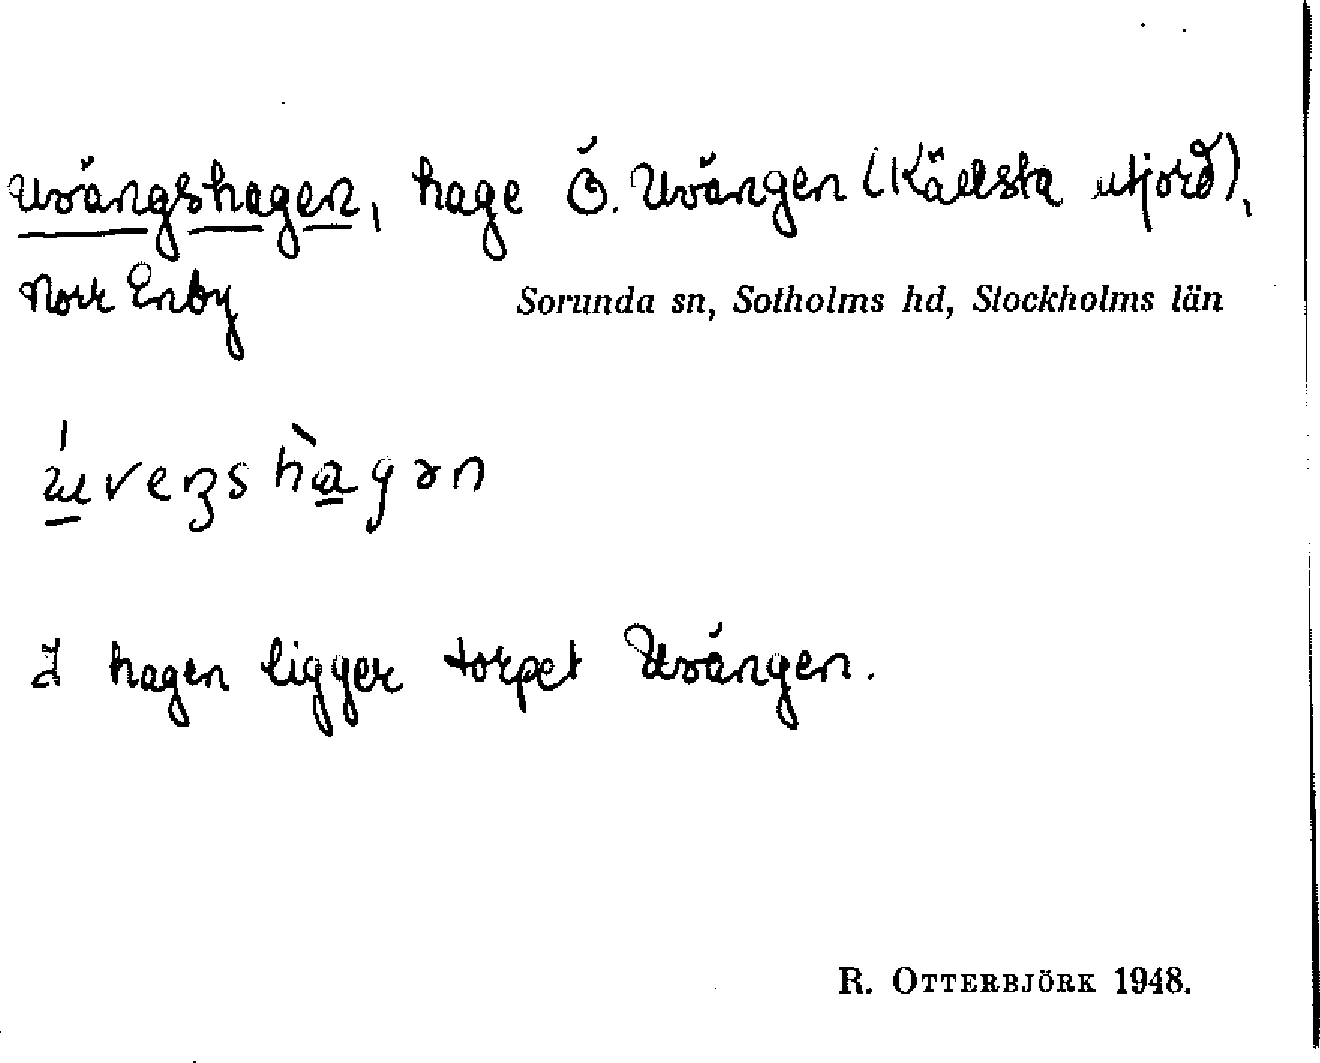 Uvängshagen, hage Ö. Uvängen (Källsta utjord),
Norr Enby Sorunda sn, Sotholms hd, Stockholms län
I hagen ligger torpet Uvängen.
R. OTTERBJÖRK 1948.